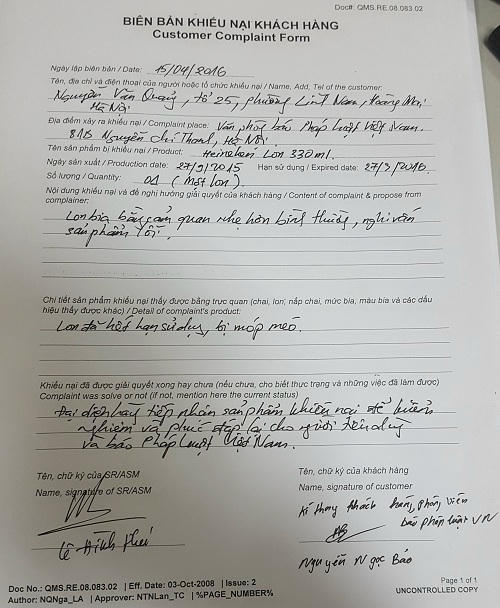 Doc#: QMS.RE.08.083.02
BIÊN BẢN KHIẾU NẠI KHÁCH HÀNG
Customer Complaint Form
Ngày lập biên bản / Date: 15/04/2016
Tên, địa chỉ và điện thoại của người hoặc tổ chức khiếu nại / Name, Add, Tel of the customer:
Nguyễn Văn Quang, tổ 25, phường Lĩnh Nam, Hoàng Mai,
Hà Nội
Địa điểm xảy ra khiếu nại / Complaint place: Văn phòng báo Pháp Luật Việt Nam.
81B Nguyễn Chí Thanh, Hà Nội.
Tên sản phẩm bị khiếu nại / Product: Heineken Lon 330ml.
Ngày sản xuất / Production date: 27/9/2015 Hạn sử dụng / Expired date: 27/3/2016.
Số lượng / Quantity: 01 (Một lon).
Nội dung khiếu nại và đề nghị hướng giải quyết của khách hàng / Content of complaint & propose from
complainer:
Lon bia bằng cảm quan nhẹ hơn bình thường, nghi vấn
sản phẩm lỗi.
Chi tiết sản phẩm khiếu nại thấy được bằng trực quan (chai, lon, nắp chai, mức bia, màu bia và các dấu
hiệu thấy được khác) / Detail of complaint's product:
Lon đã hết hạn sử dụng, bị móp méo.
Khiếu nại đã được giải quyết xong hay chưa (nếu chưa, cho biết thực trạng và những việc đã làm được)
Complaint was solve or not (if not, mention here the current status)
Đại diện hãng tiếp nhận sản phẩm khiếu nại để kiểm
nghiệm và phúc đáp lại cho người tiêu dùng
và báo Pháp Luật Việt Nam.
Tên, chữ ký của SR/ASM
Name, signature of SR/ASM
Lê
Tên, chữ ký của khách hàng
Name, signature of customer
khách hàng, phóng viên
báo pháp luật VN
Nguyễn Ngọc Bảo
Doc No.: QMS.RE.08.083.02 | Eff. Date: 03-Oct-2008 | Issue: 2
Author: NQNga_LA | Approver: NTNLan_TC | %PAGE_NUMBER%
Page 1 of 1
UNCONTROLLED COPY